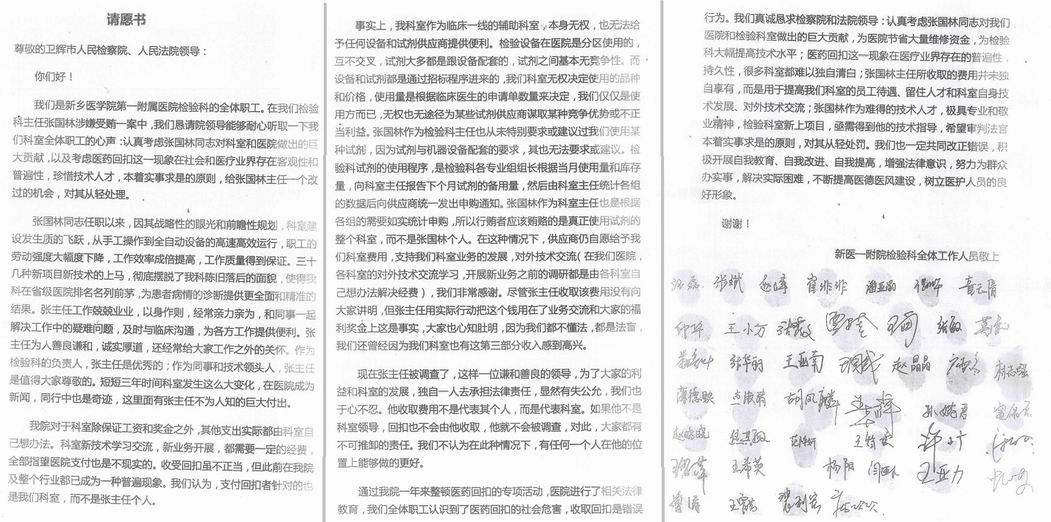 请愿书
尊敬的卫辉市人民检察院、人民法院领导：
你们好！
我们是新乡医学院第一附属医院检验科的全体职工。在我们检验
科主任张国林涉嫌受贿一案中，我们恳请院领导能够耐心听取一下我
们科室全体职工的心声：认真考虑张国林同志对科室和医院做出的巨
大贡献，以及考虑医药回扣这一现象在社会和医疗业界存在客观性和
普遍性，珍惜技术人才，本着实事求是的原则，给张国林主任一个改
过的机会，对其从轻处理。
张国林同志任职以来，因其战略性的眼光和前瞻性规划，科室建
设发生质的飞跃，从手工操作到全自动设备的高速高效运行，职工的
劳动强度大幅度下降，工作效率成倍提高，工作质量得到保证。三十
几种新项目新技术的上马，彻底摆脱了我科陈旧落后的面貌，使得我
科在省级医院排名名列前茅，为患者病情的诊断提供更全面和精准的
结果。张主任工作兢兢业业，以身作则，经常亲力亲为，和同事一起
解决工作中的疑难问题，及时与临床沟通，为各方工作提供便利。张
主任为人善良谦和，诚实厚道，还经常给大家工作之外的关怀。作为
检验科的负责人，张主任是优秀的；作为同事和技术领头人，张主任
是值得大家尊敬的。短短三年时间科室发生这么大变化，在医院成为
新闻，同行中也是奇迹，这里面有张主任不为人知的巨大付出。
我院对于科室除保证工资和奖金之外，其他支出实际都由科室自
己想办法。科室新技术学习交流，新业务开展，都需要一定的经费，
全部指望医院支付也是不现实的。收受回扣虽不正当，但此前在我院
及整个行业都已成为一种普遍现象。我们认为，支付回扣者针对的也
是我们科室，而不是张主任个人。
事实上，我科室作为临床一线的辅助科室，本身无权，也无法给
予任何设备和试剂供应商提供便利。检验设备在医院是分区使用的，
互不交叉，试剂大多都是跟设备配套的，试剂之间基本无竞争性。而
设备和试剂都是通过招标程序进来的，我们科室无权决定使用的品种
和价格，使用量是根据临床医生的申请单数量来决定，我们仅仅是使
用方而已，无权也无途径为某些试剂供应商谋取某种竞争优势或不正
当利益。张国林作为检验科主任也从未特别要求或建议过我们使用某
种试剂，因为试剂与机器设备配套的要求，其也无法要求或建议。检
验科试剂的使用程序，是检验科各专业组组长根据当月使用量和库存
量，向科室主任报告下个月试剂的备用量，然后由科室主任统计各组
的数据后向供应商统一发出申购通知。张国林作为科室主任也是根据
各组的需要如实统计申购，所以行贿者应该贿赂的是真正使用试剂的
整个科室，而不是张国林个人。在这种情况下，供应商仍自愿给予我
们科室费用，支持我们科室业务的发展，对外技术交流（在我们医院，
各科室的对外技术交流学习，开展新业务之前的调研都是由各科室自
己想办法解决经费），我们非常感谢。尽管张主任收取该费用没有向
大家讲明，但张主任用实际行动把这个钱用在了业务交流和大家的福
利奖金上这是事实，大家也心知肚明，因为我们都不懂法，都是法盲，
我们还曾经因为我们科室也有这第三部分收入感到高兴。
现在张主任被调查了，这样一位谦和善良的领导，为了大家的利
益和科室的发展，独自一人去承担法律责任，显然有失公允，我们也
于心不忍。他收取费用不是代表其个人，而是代表科室。如果他不是
科室领导，回扣也不会由他收取，他就不会被调查，对此，大家都有
不可推卸的责任。我们不认为在此种情况下，有任何一个人在他的位
置上能够做的更好。
通过我院一年来整顿医药回扣的专项活动，医院进行了相关法律
教育，我们全体职工认识到了医药回扣的社会危害，收取回扣是错误
行为。我们真诚恳求检察院和法院领导：认真考虑张国林同志对我们
医院和检验科室做出的巨大贡献，为医院节省大量维修资金，为检验
科大幅提高技术水平；医药回扣这一现象在医疗业界存在的普遍性，
持久性，很多科室都难以独自清白；张国林主任所收取的费用并未独
自享有，而是用于提高我们科室的员工待遇、留住人才和科室自身技
术发展、对外技术交流；张国林作为难得的技术人才，极具专业和敬
业精神，检验科室新上项目，亟需得到他的技术指导，希望审判法官
本着实事求是的原则，对其从轻处罚。我们也一定共同改正错误，积
极开展自我教育、自我改进、自我提高，增强法律意识，努力为群众
办实事，解决实际困难，不断提高医德医风建设，树立医护人员的良
好形象。
谢谢！
新医一附院检验科全体工作人员敬上
张斌
王小万
张华丽 王西南 赵晶晶
胡凤麟
王希英 杨阳 王亚力